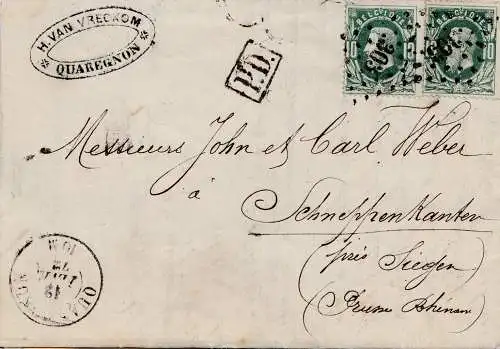 H. VAN VRECKOM
QUAREGNON
P.D.
BELGIQUE
10 10
BELGIQUE
10
303
Messieurs John et Carl Weber
à
Schneppenkanten
(près Siegen
(Prusse Rhénane)
QUAREGNON
10 M